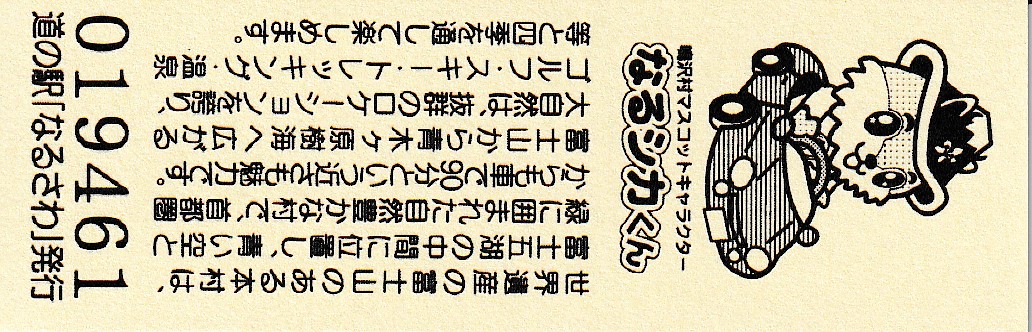 鳴沢村マスコットキャラクター
なるシカくん
世界遺産の富士山のある本村は、
富士五湖の中間に位置し、青い空と
緑に囲まれた自然豊かな村で、首都圏
からも車で90分という近さも魅力です。
富士山から青木ヶ原樹海へ広がる
大自然は、抜群のロケーションを誇り、
ゴルフ・スキー・トレッキング・温泉
等と四季を通して楽しめます。
019461
道の駅「なるさわ」発行